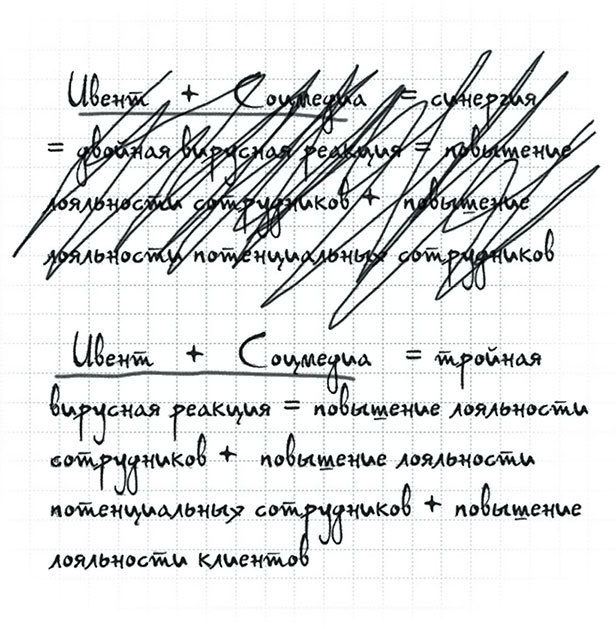 Ивент + Соцмедиа = синергия
= двойная вирусная реакция = повышение
лояльности сотрудников + повышение
лояльности потенциальных сотрудников
Ивент + Соцмедиа = тройная
вирусная реакция = повышение лояльности
сотрудников + повышение лояльности
потенциальных сотрудников + повышение
лояльности клиентов